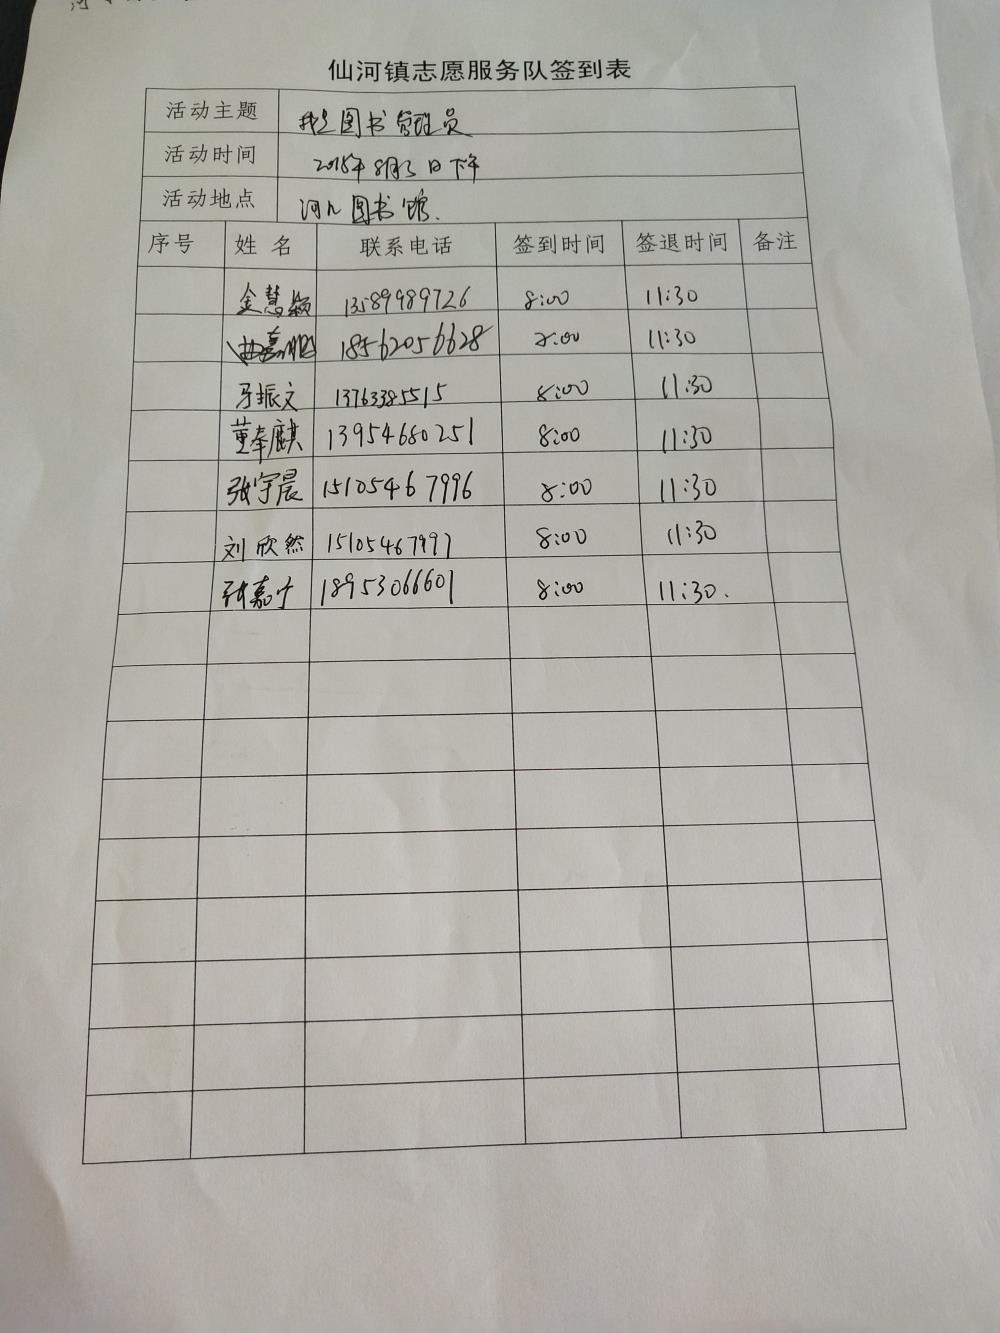 仙河镇志愿服务队签到表
活动主题 我是图书管理员
活动时间 2018年8月3日下午
活动地点 河儿图书馆.
序号 姓名 联系电话 签到时间 签退时间 备注
金慧颖 13589989726 8:00 11:30
曲嘉鹏 18562056628 8:00 11:30
马振文 13763385515 8:00 11:30
董奉麒 13954680251 8:00 11:30
张宇晨 15105467996 8:00 11:30
刘欣然 15105467997 8:00 11:30
张嘉宁 18953066601 8:00 11:30.